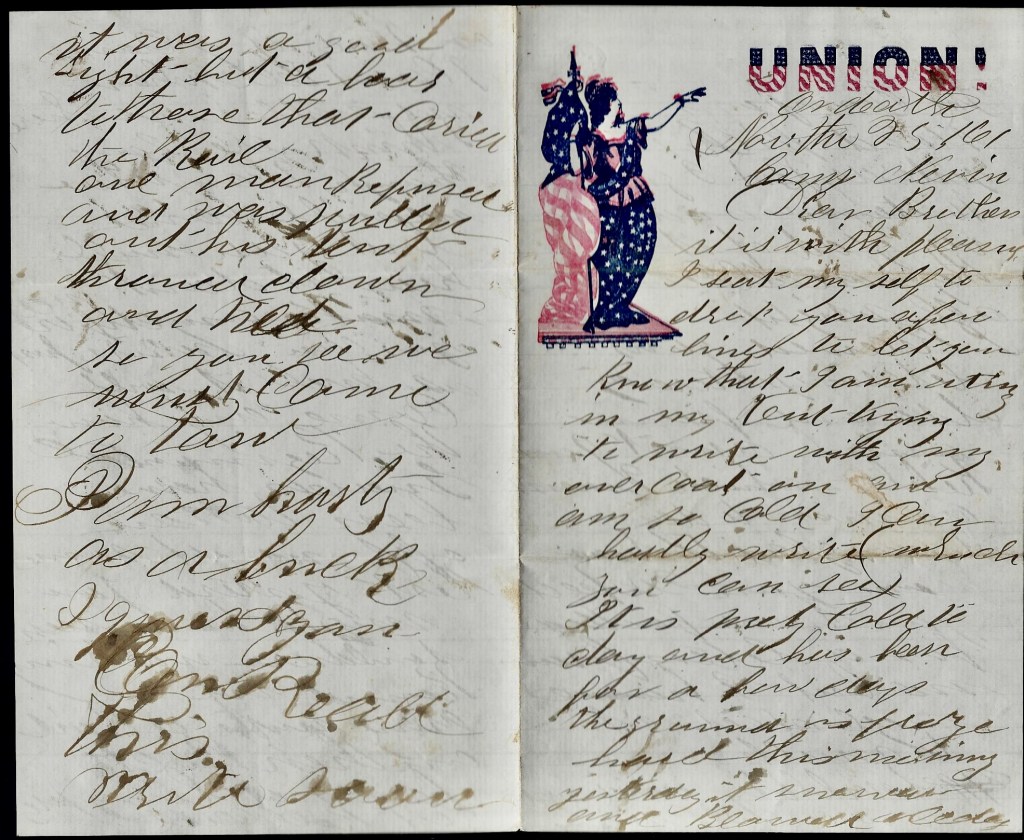 UNION!
or death
Nov the 25, 61
Camp Nevin
Dear Brother
it is with pleasure
I seat my self to
drop you a few
lines to let you
know that I am siting
in my Tent trying
to write with my
over coat on and
am so Cold I Can
hardly write (which
you can see)
It is prety Cold to
day and has been
for a few days
the ground is froze
hard this morning
yesterday it snowed
and Blowed
it was a good
sight but a
to those that Caried
the Rail
one man Refused
and was pulled
out his tent
throwed down
and tied
so you see we
must Come
to Taw
I am harty
as a buck
I
Can Read
this
write soon